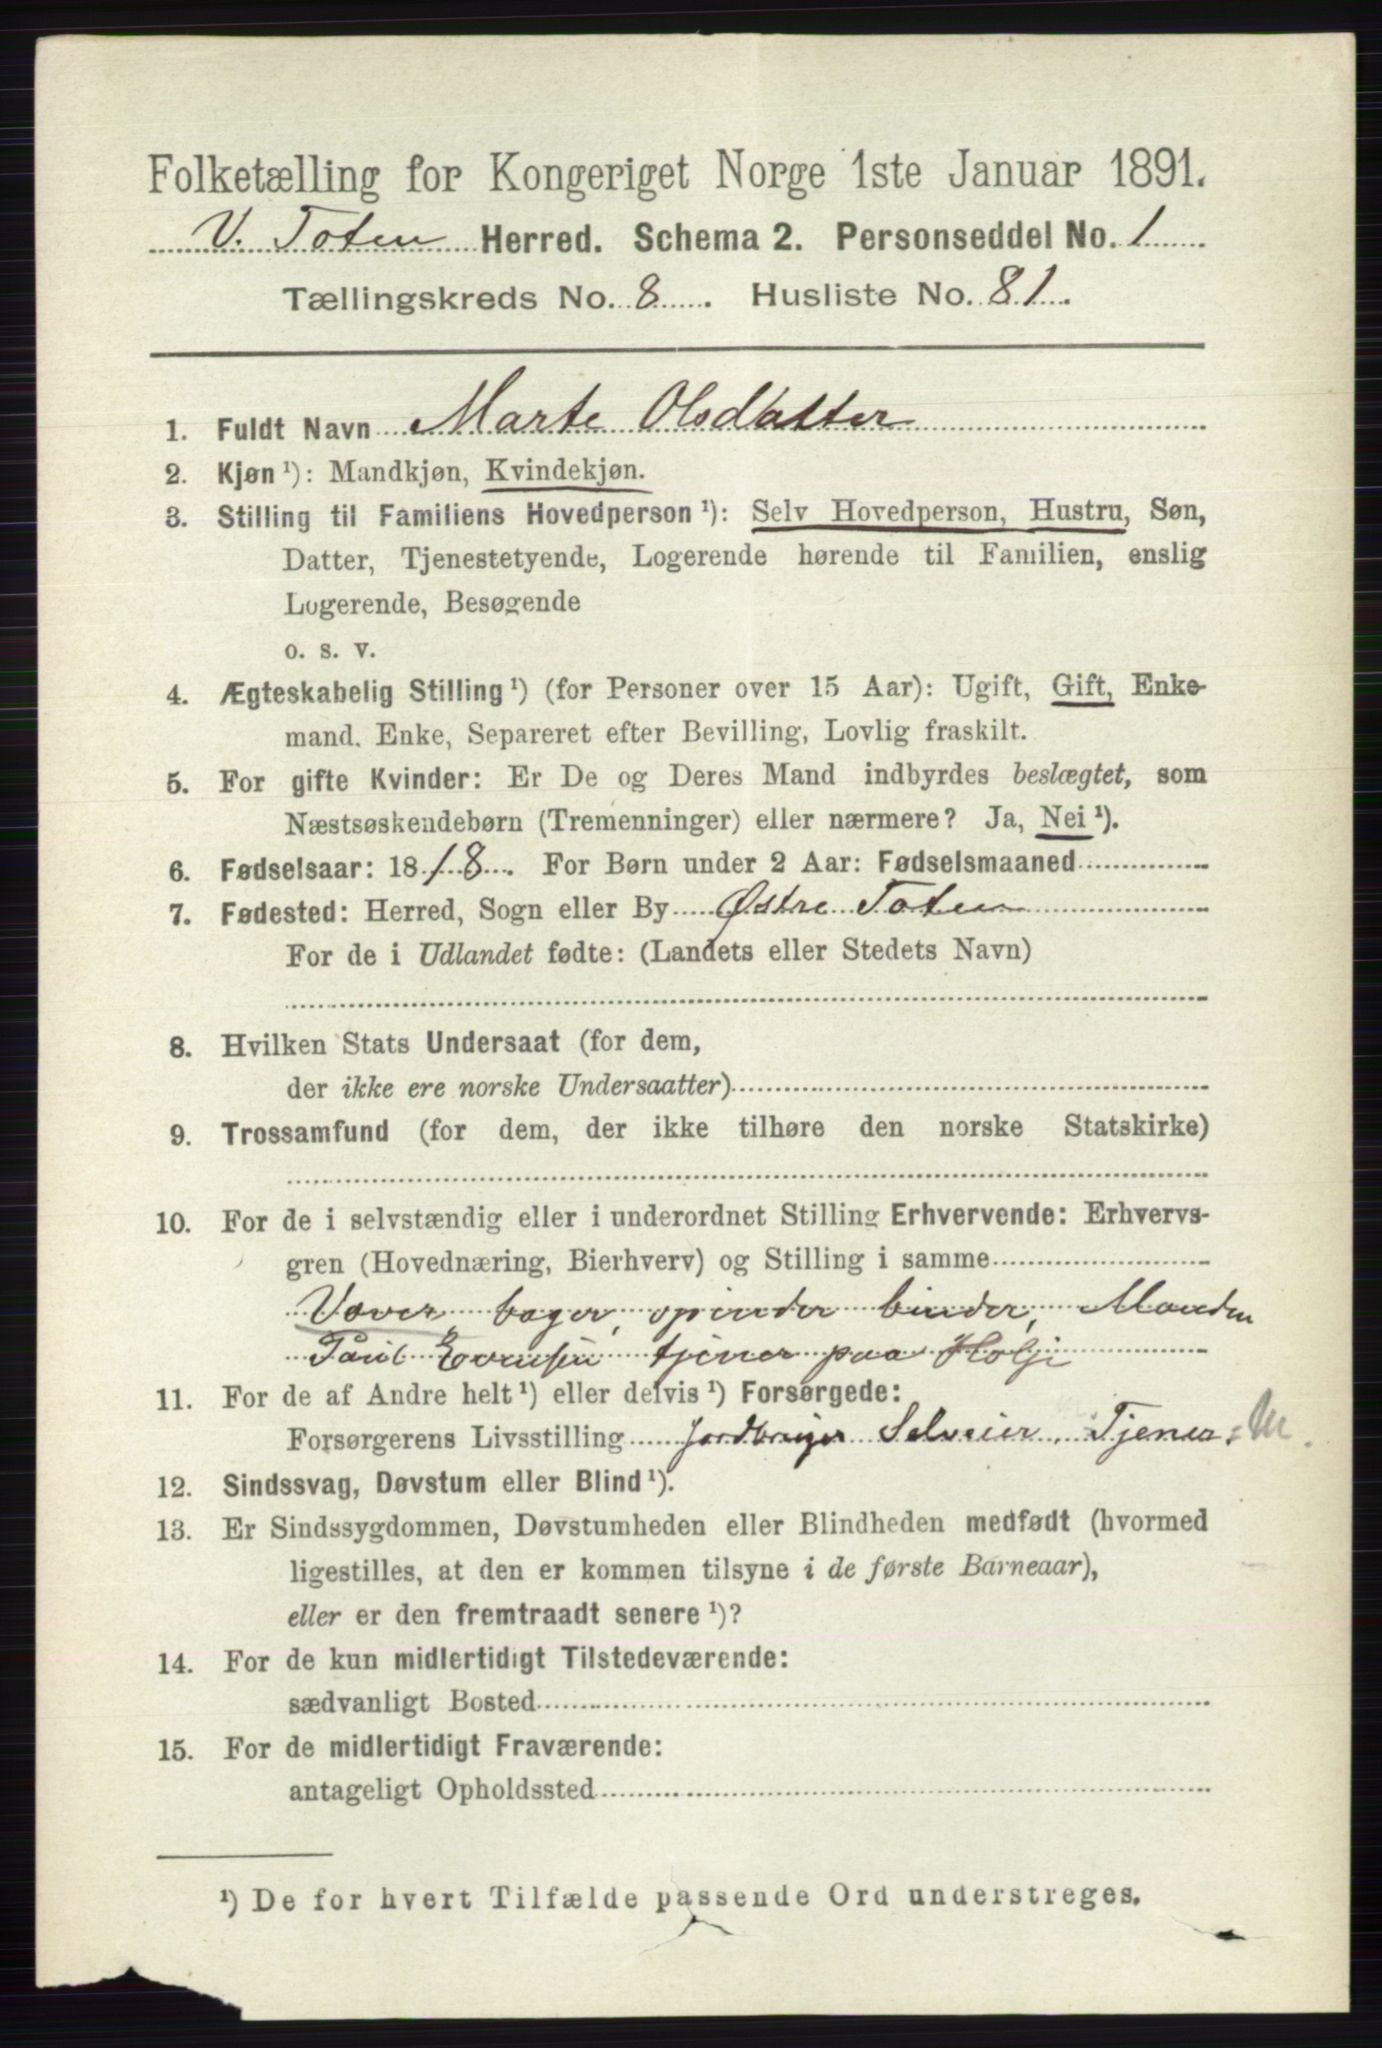 Folketælling for Kongeriget Norge 1ste Januar 1891.
V. Toten Herred. Schema 2. Personseddel No. 1
Tællingskreds No. 8. Husliste No. 81.
1. Fuldt Navn Marte Olsdatter
2. Kjøn ¹): Mandkjøn, Kvindekjøn.
3. Stilling til Familiens Hovedperson ¹): Selv Hovedperson, Hustru, Søn,
Datter, Tjenestetyende, Logerende hørende til Familien, enslig
Logerende, Besøgende
o. s. v.
4. Ægteskabelig Stilling ¹) (for Personer over 15 Aar): Ugift, Gift, Enke-
mand. Enke, Separeret efter Bevilling, Lovlig fraskilt.
5. For gifte Kvinder: Er De og Deres Mand indbyrdes beslægtet, som
Næstsøskendebørn (Tremenninger) eller nærmere? Ja, Nei ¹).
6. Fødselsaar: 1818. For Børn under 2 Aar: Fødselsmaaned
7. Fødested: Herred, Sogn eller By Østre Toten
For de i Udlandet fødte: (Landets eller Stedets Navn)
8. Hvilken Stats Undersaat (for dem,
der ikke ere norske Undersaatter)
9. Trossamfund (for dem, der ikke tilhøre den norske Statskirke)
10. For de i selvstændig eller i underordnet Stilling Erhvervende: Erhvervs-
gren (Hovednæring, Bierhverv) og Stilling i samme
Væver, bager, spinder binder, Manden
tjener paa
11. For de af Andre helt ¹) eller delvis ¹) Forsørgede:
Forsørgerens Livsstilling Jordbruger Selveier, Tjener
12. Sindssvag, Døvstum eller Blind ¹).
13. Er Sindssygdommen, Døvstumheden eller Blindheden medfødt (hvormed
ligestilles, at den er kommen tilsyne i de første Barneaar),
eller er den fremtraadt senere ¹)?
14. For de kun midlertidigt Tilstedeværende:
sædvanligt Bosted
15. For de midlertidigt Fraværende:
antageligt Opholdssted
¹) De for hvert Tilfælde passende Ord understreges.